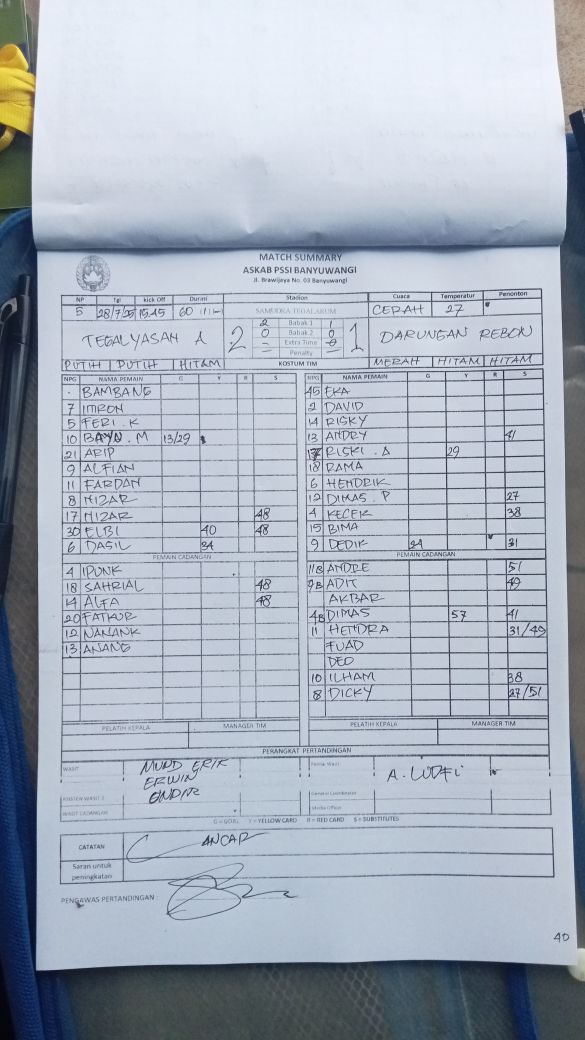 MATCH SUMMARY
ASKAB PSSI BANYUWANGI
Jl. Brawijaya No. 03 Banyuwangi
NP Tgl kick Off Durasi Stadion Cuaca Temperatur Penonton
5 28/7/25 15.45 60 SAMUDRA TEGALARUM CERAH 27
TEGALYASAN A 2 1 DARUNGAN REBON
2 Babak 1 1
0 Babak 2 0
- Extra Time
- Penalty -
PUTIH PUTIH HITAM KOSTUM TIM MERAH HITAM HITAM
NPG NAMA PEMAIN G Y R S NPG NAMA PEMAIN G Y R S
- BAMBANG 45 EKA
7 IMRON 2 DAVID
5 FERI . K 14 RISKY
10 BAYU . M 13/29 13 ANDRY 41
21 ARIP RISKI . A 29
9 ALFIAN 18 RAMA
11 FARDAN 6 HENDRIK
8 NIZAR 12 DIMAS . P 27
17 NIZAR 48 4 KECEK 38
30 ELBI 40 48 15 BIMA
6 DASIL 34 9 DEDIK 24 31
PEMAIN CADANGAN PEMAIN CADANGAN
4 IPUNK 11B ANDRE 51
18 SAHRIAL 48 9B ADIT 49
14 ALFA 48 AKBAR
20 FATKUR 4B DIMAS 57 41
12 NANANK 11 HENDRA 31/49
13 ANANG FUAD
DEO
10 ILHAM 38
8 DICKY 27/51
PELATIH KEPALA MANAGER TIM PELATIH KEPALA MANAGER TIM
PERANGKAT PERTANDINGAN
WASIT MUHD ERIK A. LUDFI
ERWIN
ASISTEN WASIT 2 General Coordinator
WASIT CADANGAN Media Officer
G = GOAL Y = YELLOW CARD R = RED CARD S = SUBSTITUTES
CATATAN ANCAR
Saran untuk
peningkatan
PENGAWAS PERTANDINGAN :
40